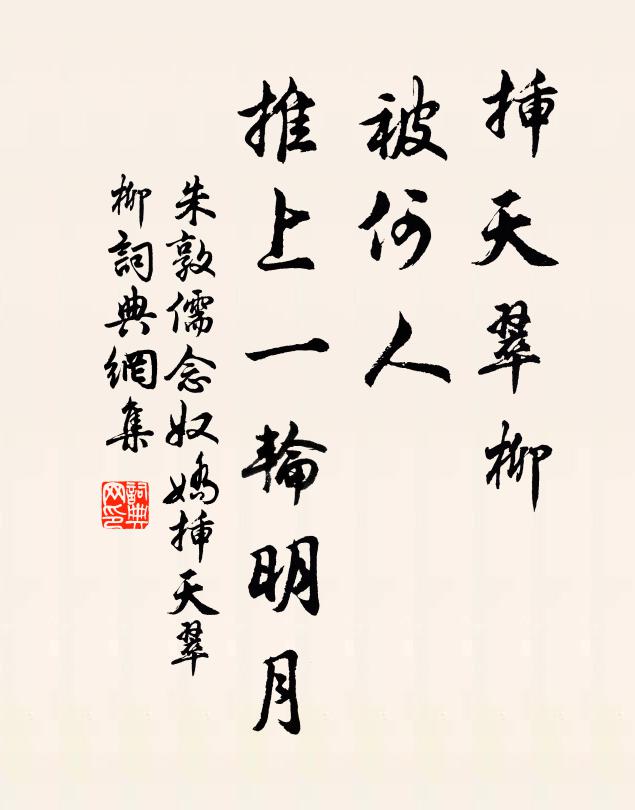 挿天翠柳
被何人
推上一輪明月
朱敦儒念奴嬌挿天翠
柳詞典網集
詞典
网印